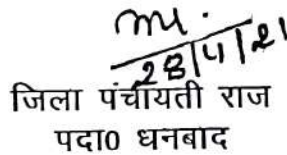 28/4/21
जिला पंचायती राज
पदा0 धनबाद